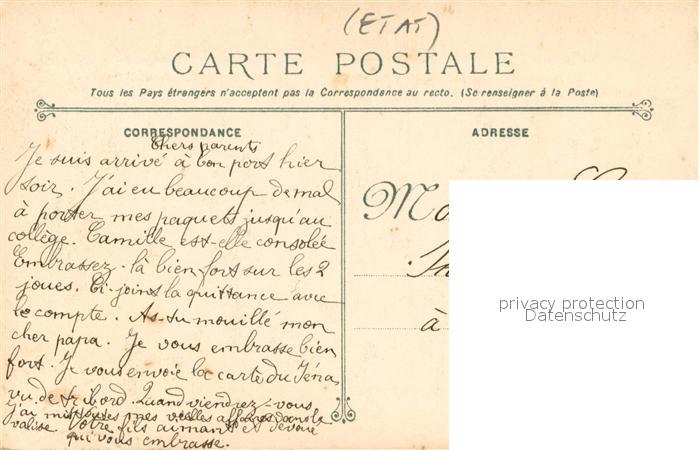 (ETAT)
CARTE POSTALE
Tous les Pays étrangers n'acceptent pas la Correspondance au recto. (Se renseigner à la Poste)
CORRESPONDANCE
Chers parents
Je suis arrivé à bon port hier
soir. J'ai eu beaucoup de mal
à porter mes paquets jusqu'au
collège. Camille est-elle consolée
Embrassez-là bien fort sur les 2
joues. Ci-joins la quittance avec
le compte. As-tu mouillé mon
cher papa. Je vous embrasse bien
fort. Je vous envoie la carte du Iéna
vu de tribord. Quand viendrez-vous
j'ai mis toutes mes vieilles affaires dans la
valise. Votre fils aimant et dévoué
qui vous embrasse.
ADRESSE
M
à
privacy protection
Datenschutz